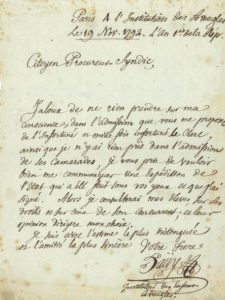 Paris A l'Institution des Aveugles
Le 19 Nov. 1792. L'An 1er de la Rép.
Citoyen Procureur Syndic
Jaloux de ne rien prendre sur ma
conscience dans l'admission que vous me proposez
de l'infortuné et mille fois infortuné le Clerc
ainsi que je n'ai rien pris dans l'admission
de ses Camarades, je vous prie de vouloir
bien me communiquer une Expédition de
l'Etat qui a été fait sous vos yeux et que j'ai
signé. Alors je consulterai mes Eleves sur les
droits et sur ceux de son concurrent, et leur
opinion dirigera mon choix.
Je suis avec l'estime la plus distinguée
et l'amitié la plus sincère Votre Frere
haüy
Instituteur des
aveugles